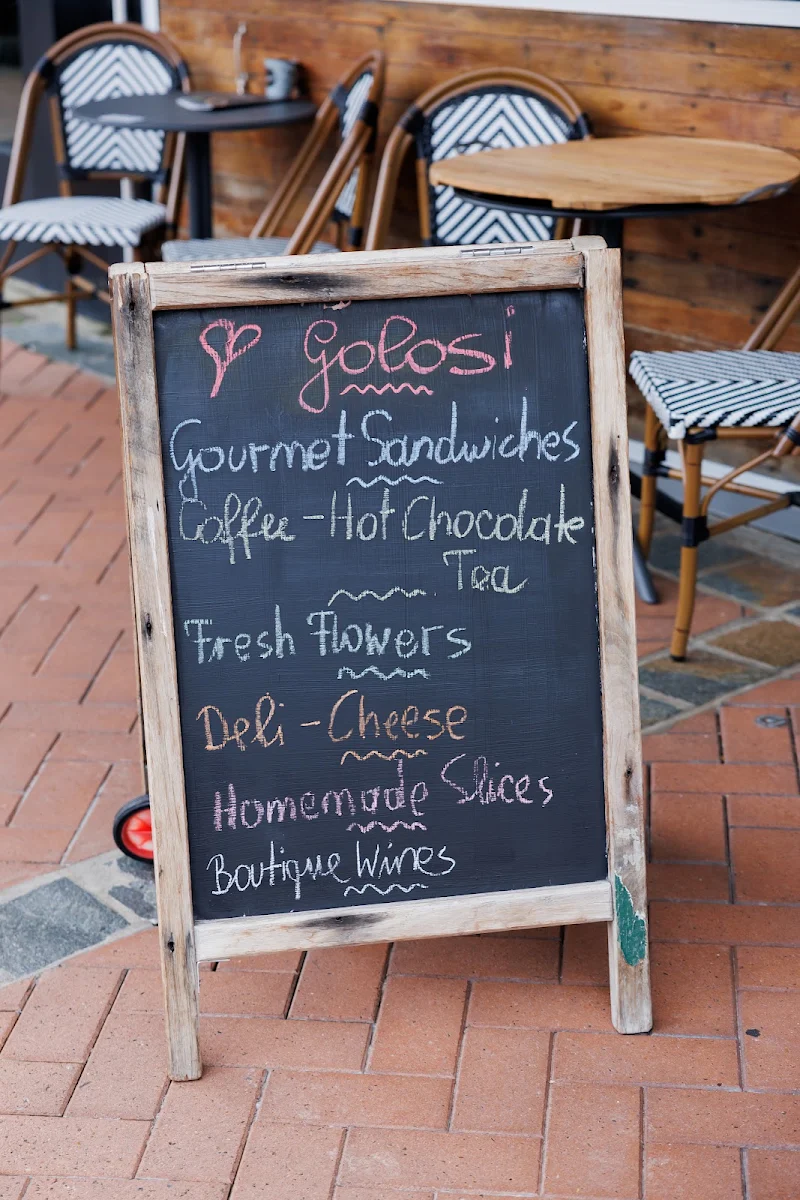 Golosi
Gourmet Sandwiches
Coffee - Hot Chocolate
Tea
Fresh Flowers
Deli - Cheese
Homemade Slices
Boutique Wines